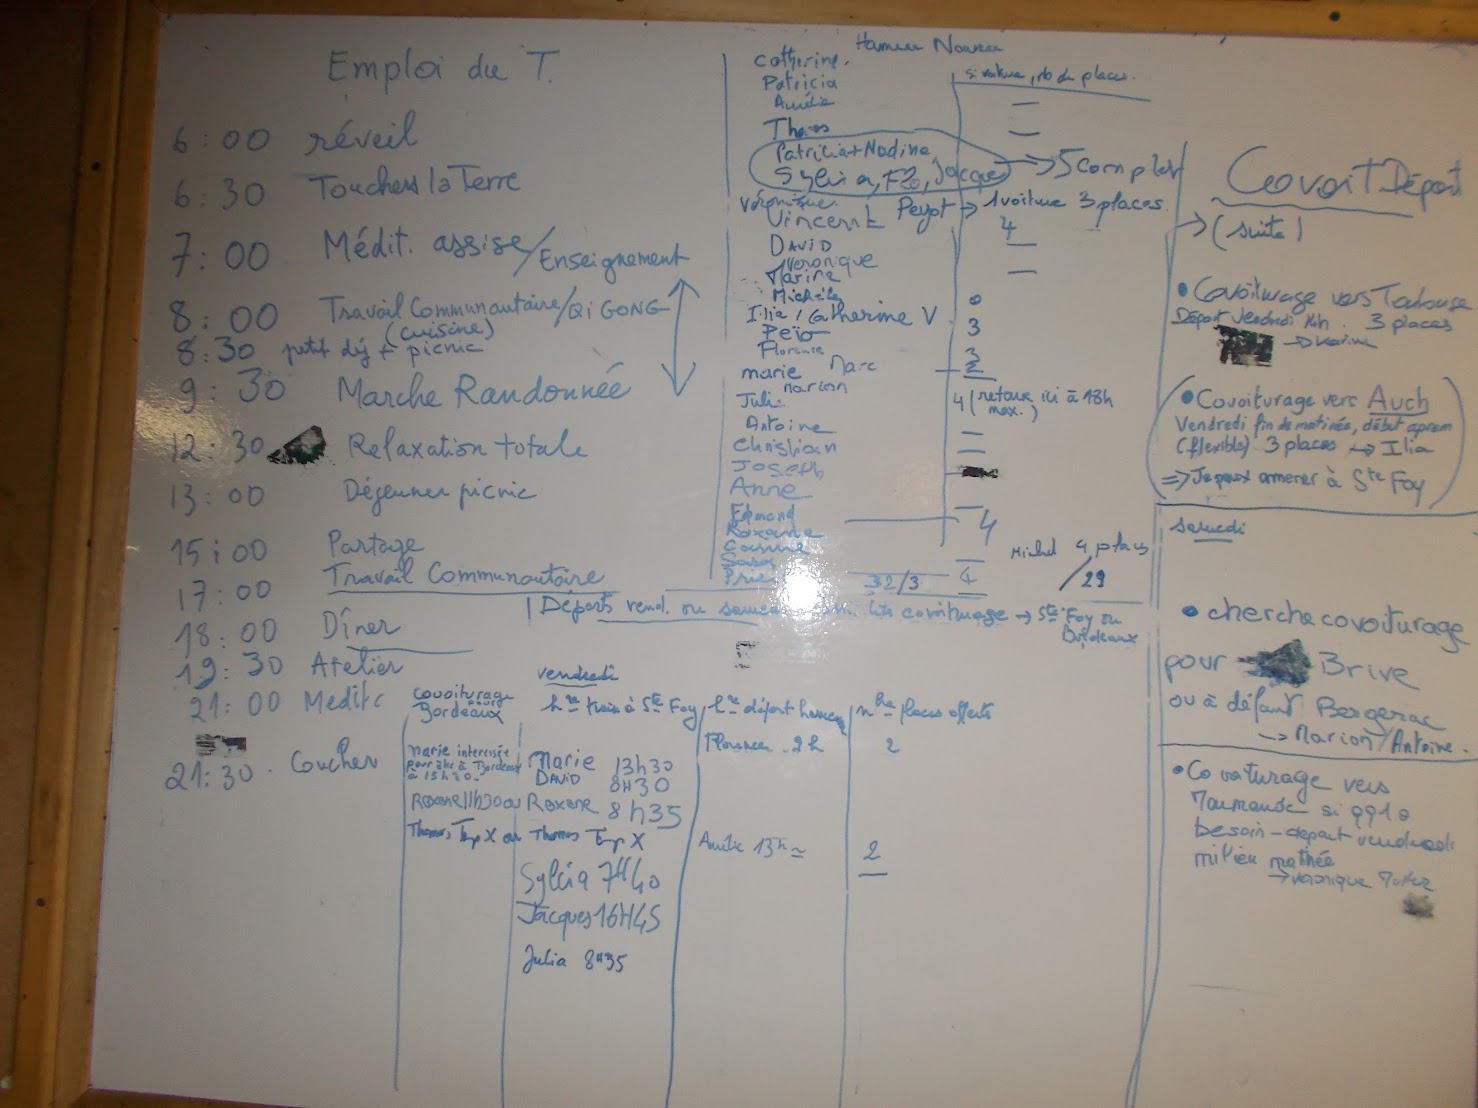 Emploi du T.
6:00 réveil
6:30 Touchers la Terre
7:00 Médit. assise/Enseignement
8:00 Travail Communautaire/Qi GONG
(cuisine)
8:30 petit déj + picnic
9:30 Marche Randonnée
12:30 Relaxation totale
13:00 Déjeuner picnic
15:00 Partage
17:00 Travail Communautaire
18:00 Dîner
19:30 Atelier
21:00 Medit
21:30. Coucher
Hameau Nouveau
si voiture, nb de places.
Catherine.
Patricia
Amélie —
Thomas —
Patricia+Nadine
Sylvia, Flo, Jacques → 5 complet
Véronique Peyot → 1 voiture 3 places.
Vincent 4
DAVID —
Veronique
Marine —
Michèle 0
Ilia / Catherine V 3
Peïo
Florence 3
marie Marc 2
marion
Julie 4 (retour ici à 18h
max.)
Antoine —
Christian —
Joseph
Anne —
Edmond 4
Roxane
Sara —
32/3 4
Michel 4 places
/29
Départs vend. ou samedi covoiturage → Ste Foy ou
Bordeaux
Covoiturage
pour
Bordeaux
marie interessée
pour être à Bordeaux
à 15h20.
Roxane 11h30 ou
Thomas Tmp X ou
vendredi
hre train à Ste Foy
Marie 13h30
DAVID 8H30
Roxane 8h35
Thomas Tmp X
Sylvia 7H40
Jacques 16H45
Julia 8H35
hre départ hameau
Florence 9h
Amélie 13h
nbre places offerts
2
2
Covoit Départ
→ (suite)
• Covoiturage vers Toulouse
Départ vendredi 14h. 3 places
→ Karine
• Covoiturage vers Auch
Vendredi fin de matinée, début aprem
(flexible) 3 places → Ilia
⇒ Je peux amener à Ste Foy
samedi
• cherche covoiturage
pour Brive
ou à défaut Bergerac
→ Marion/Antoine.
• Covoiturage vers
Marmande si qq1 a
besoin - depart vendredi
milieu matinée
→ Véronique